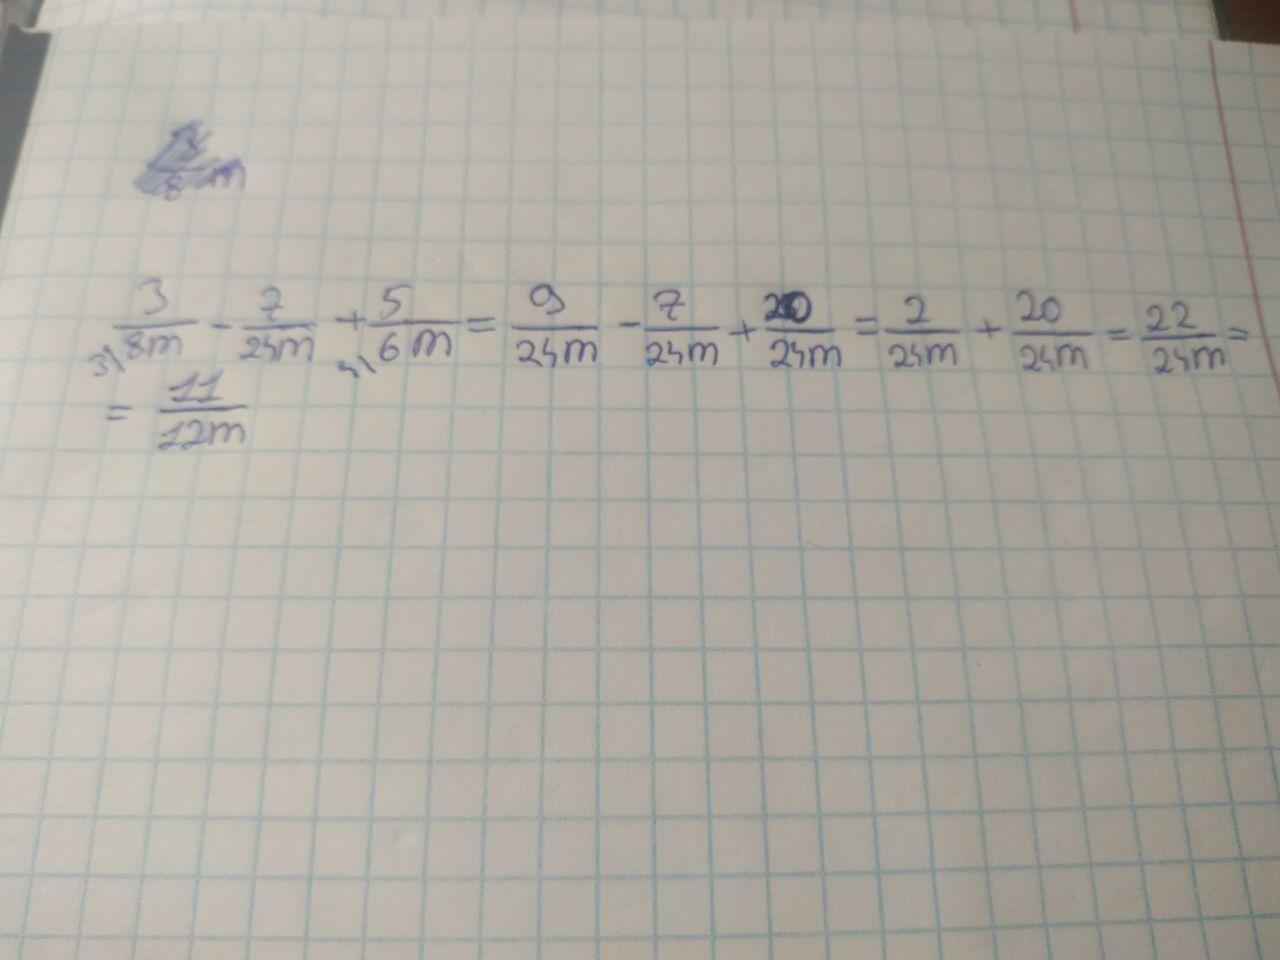 3/8m - 7/24m + 5/6m = 9/24m - 7/24m + 20/24m = 2/24m + 20/24m = 22/24m =
3\ 4\
= 11/12m